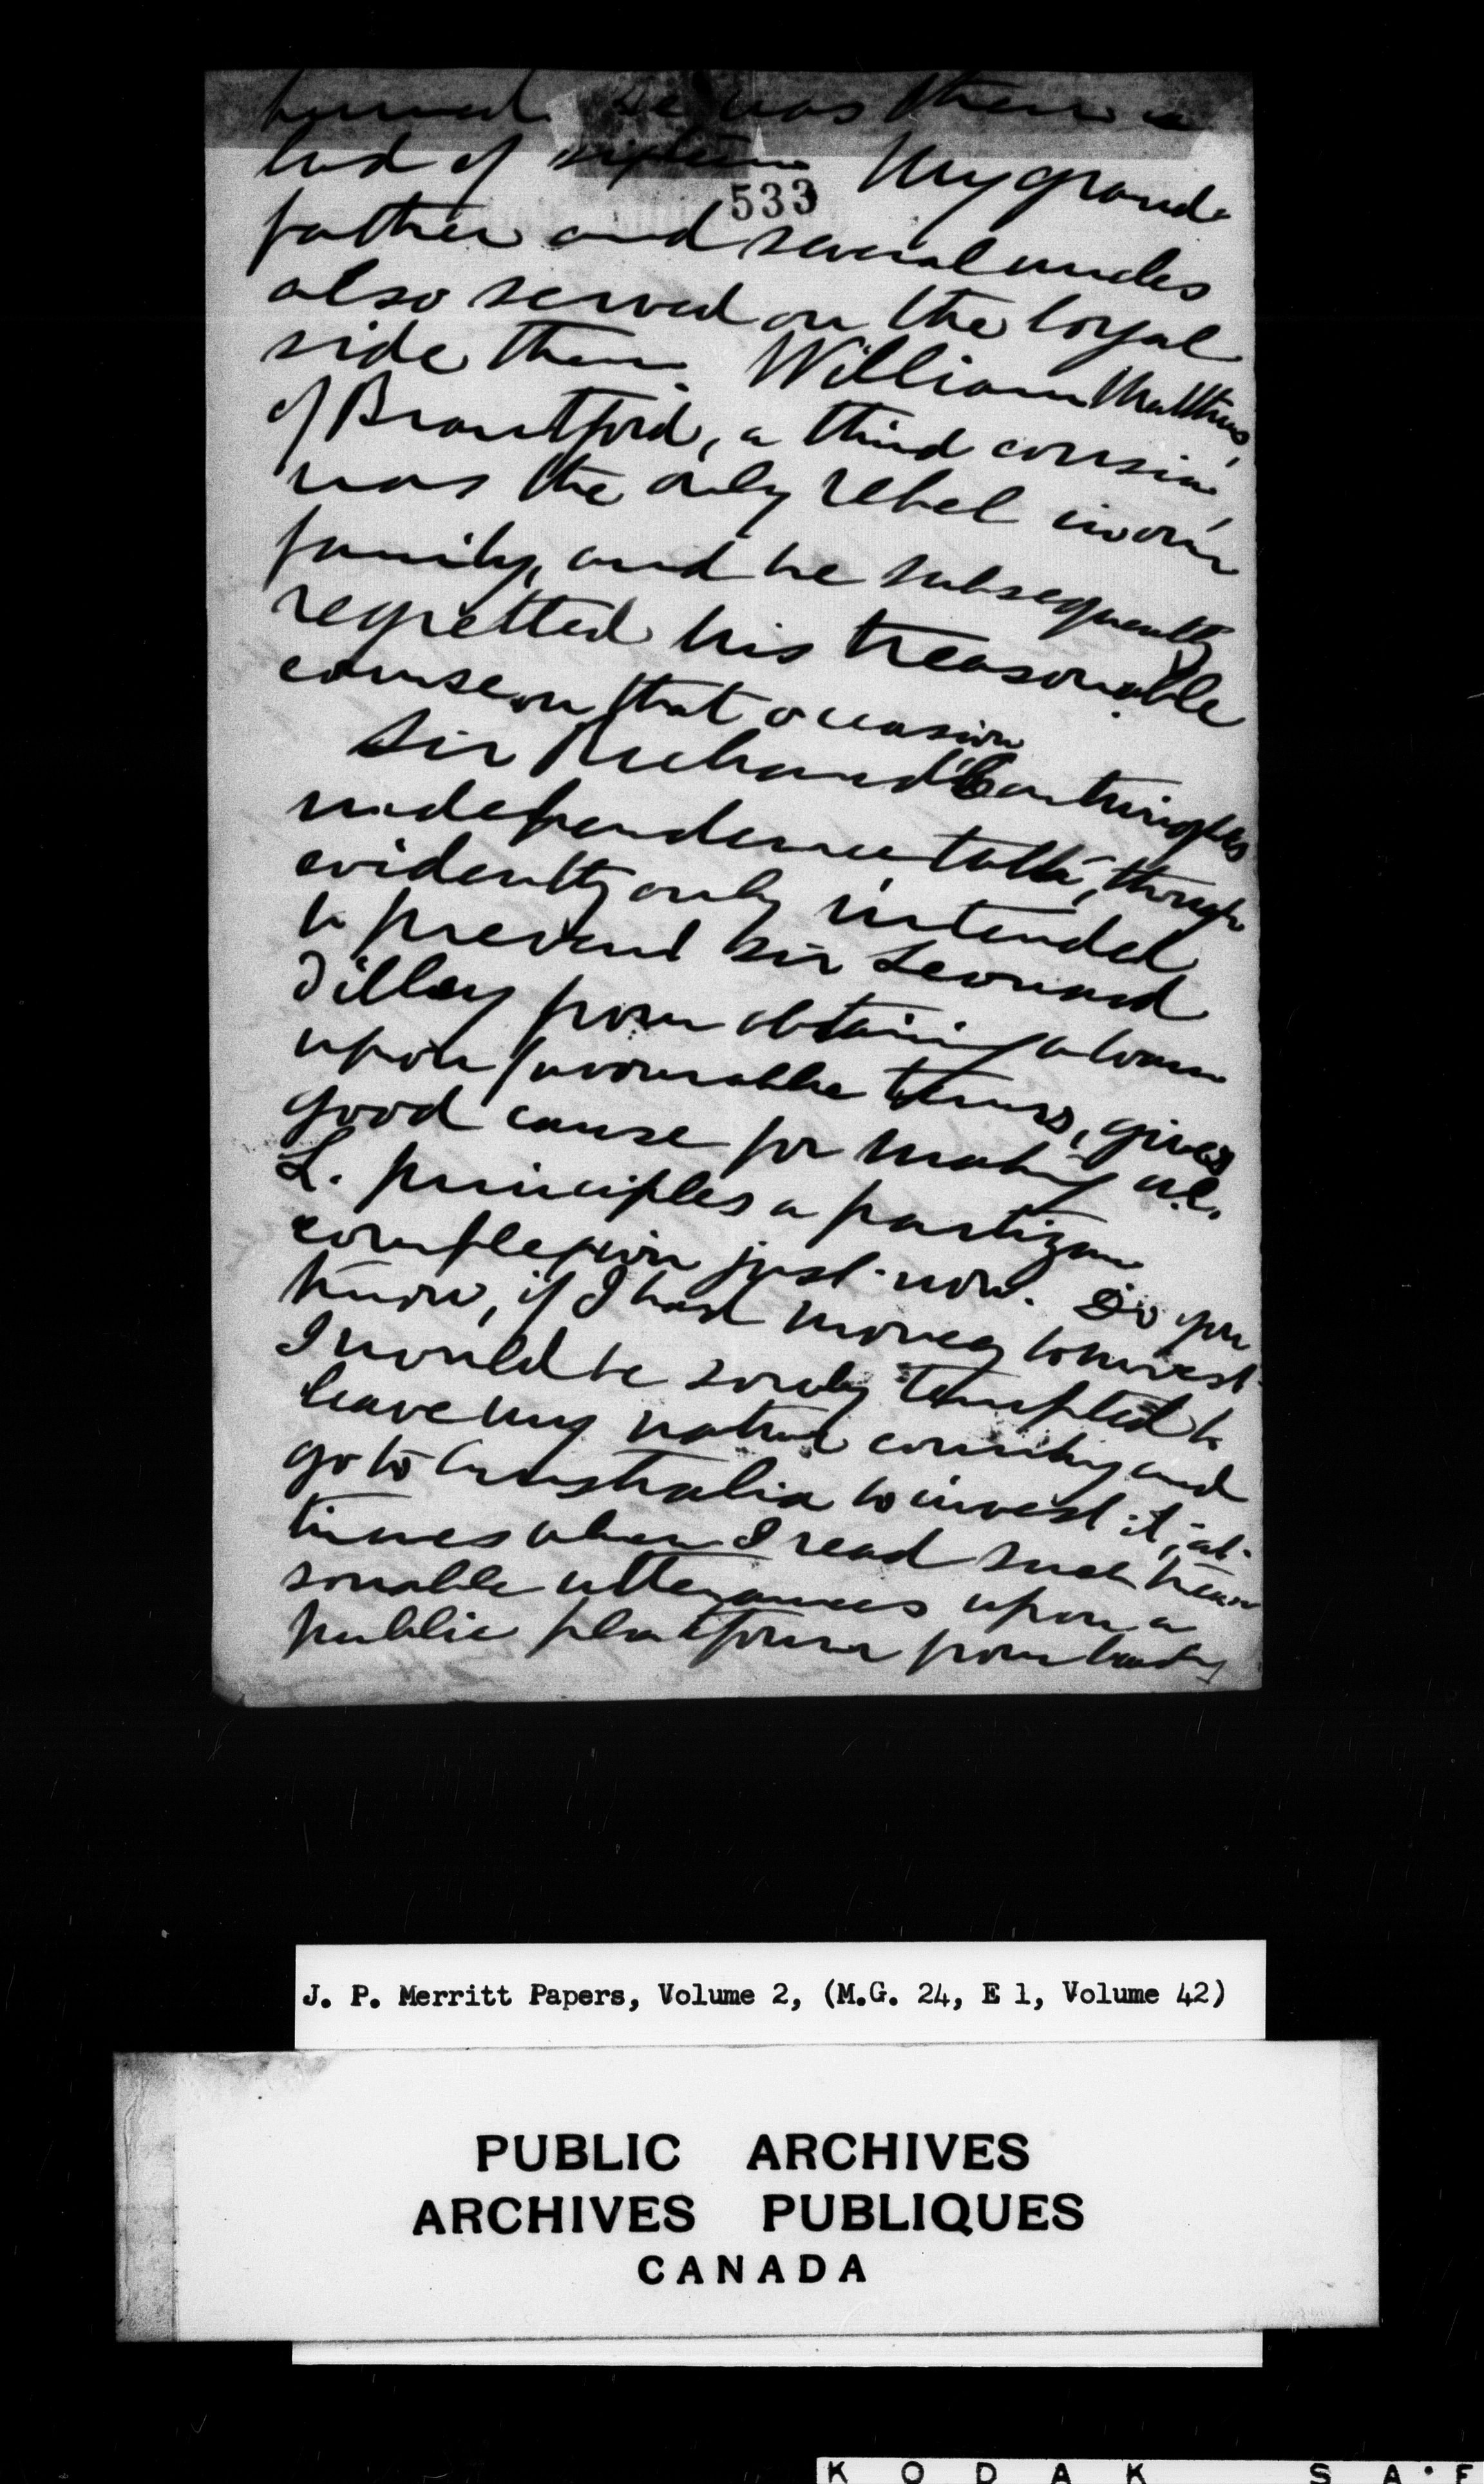 He was then a
lad of sixteen. My grand-
533
father and several uncles
also served on the loyal
side then. William Matthews,
of Brantford, a third cousin,
was the only rebel in our
family, and he subsequently
regretted his treasonable
course on that occasion.
Sir Richard Cartwright's
independence talk, though
evidently only intended
to prevent Sir Leonard
Tilley from obtaining a loan
upon favourable terms, gives
good cause for making U.E.
L. principles a partizan
complexion just now. Do you
know, if I had money to invest
I would be sorely tempted to
leave my native country and
go to Australia to invest it, at
times when I read such trea-
sonable utterances upon a
public platform from leading
J. P. Merritt Papers, Volume 2, (M.G. 24, E 1, Volume 42)
PUBLIC ARCHIVES
ARCHIVES PUBLIQUES
CANADA
KODAK SA·F